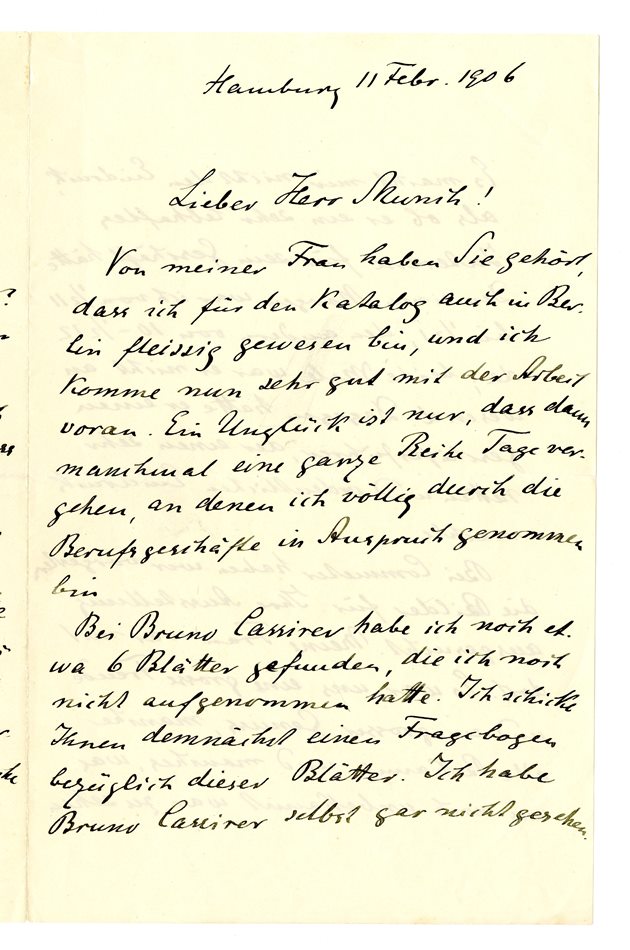 Hamburg 11 Febr. 1906
Lieber Herr Munch!
Von meiner Frau haben Sie gehört,
dass ich für den Katalog auch in Ber-
lin fleissig gewesen bin, und ich
komme nun sehr gut mit der Arbeit
voran. Ein Unglück ist nur, dass dann
manchmal eine ganze Reihe Tage ver-
gehen, an denen ich völlig durch die
Berufsgeschäfte in Anspruch genommen
bin
Bei Bruno Cassirer habe ich noch et-
wa 6 Blätter gefunden, die ich noch
nicht aufgenommen hatte. Ich schicke
Ihnen demnächst einen Fragebogen
bezüglich dieser Blätter. Ich habe
Bruno Cassirer selbst gar nicht gesehen.